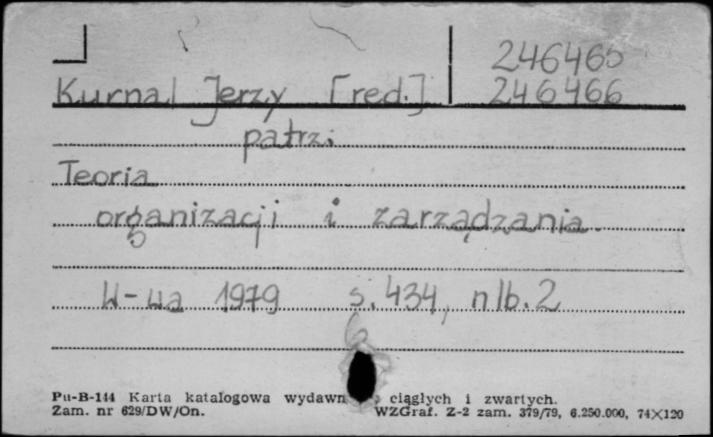 246465
Kurnal Jerzy [red.] 246466
patrz:
Teoria
organizacji i zarządzania.
W-wa 1979 s. 434, nlb. 2
Pu-B-144 Karta katalogowa wydawn ciągłych i zwartych.
Zam. nr 629/DW/On. WZGraf. Z-2 zam. 379/79, 6.250.000, 74×120